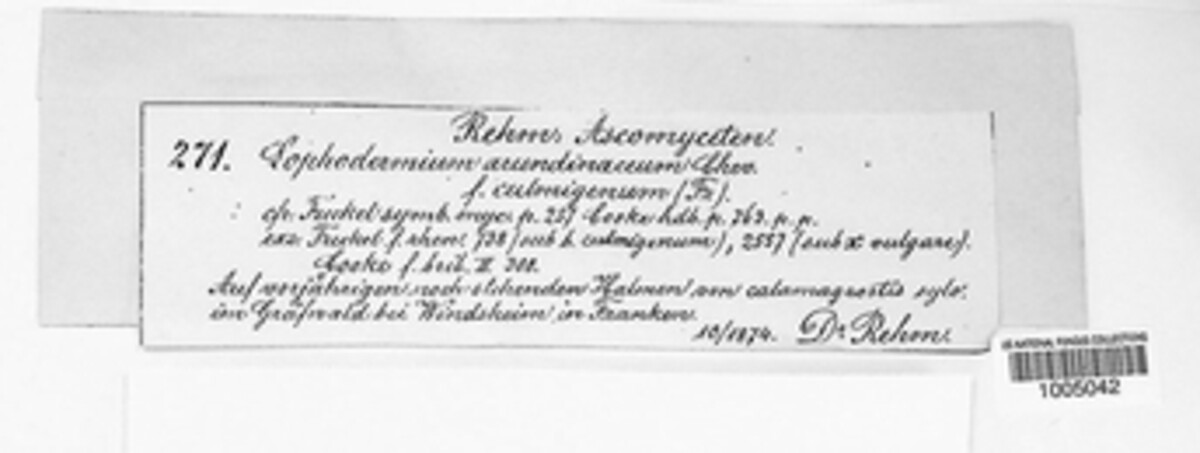 Rehm, Ascomyceten.
271. Lophodermium arundinaceum Chev.
f. culmigenum (Fr).
cfr. Fuckel symb. myc. p. 257 Cooke hdb. p. 763. p. p.
exs. Fuckel f. rhen. 738 (sub h. culmigenum), 2557 (sub x vulgare).
Cooke f. brit. II 208.
Auf vorjährigen, noch stehenden Halmen von calamagrostis sylv.
im Gräfwald bei Windsheim in Franken.
10/1874. Dr Rehm.
US NATIONAL FUNGUS COLLECTIONS
1005042